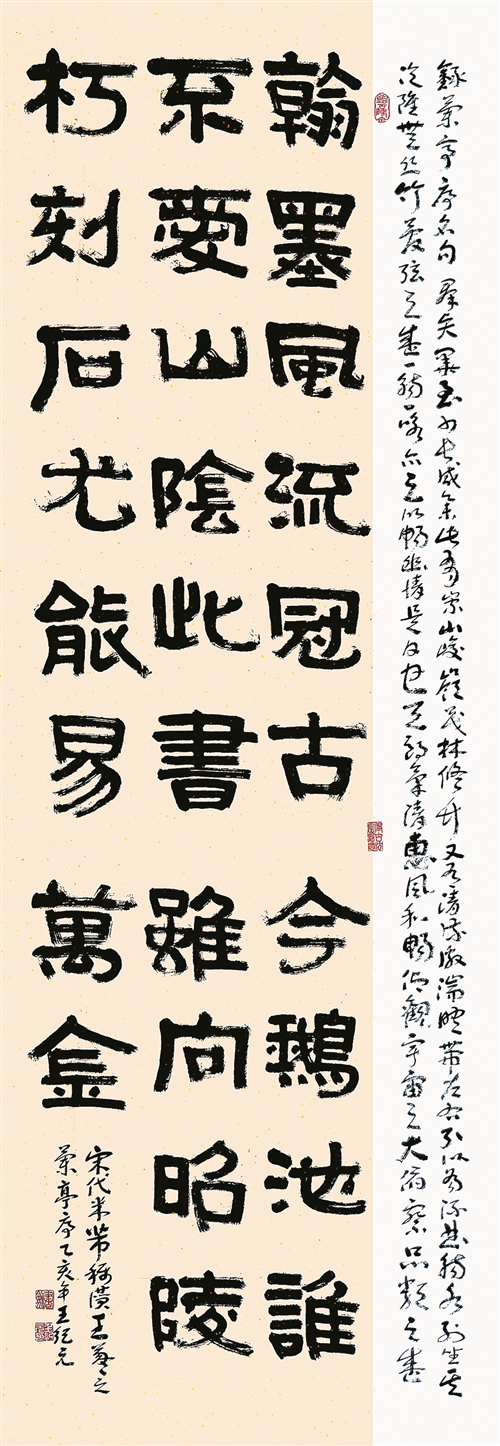 錄蘭亭序名句羣賢畢至少長咸集此有崇山峻嶺茂林修竹又有清流激湍映帶左右引以為流觴曲水列坐其
次雖無絲竹管弦之盛一觴一詠亦足以暢幽情是日也天朗氣清惠風和暢仰觀宇宙之大俯察品類之盛
翰墨風流冠古今鵝池誰
不愛山陰此書雖向昭陵
朽刻石尤能易萬金
宋代米芾稱讚王羲之
蘭亭序乙亥年王紀元